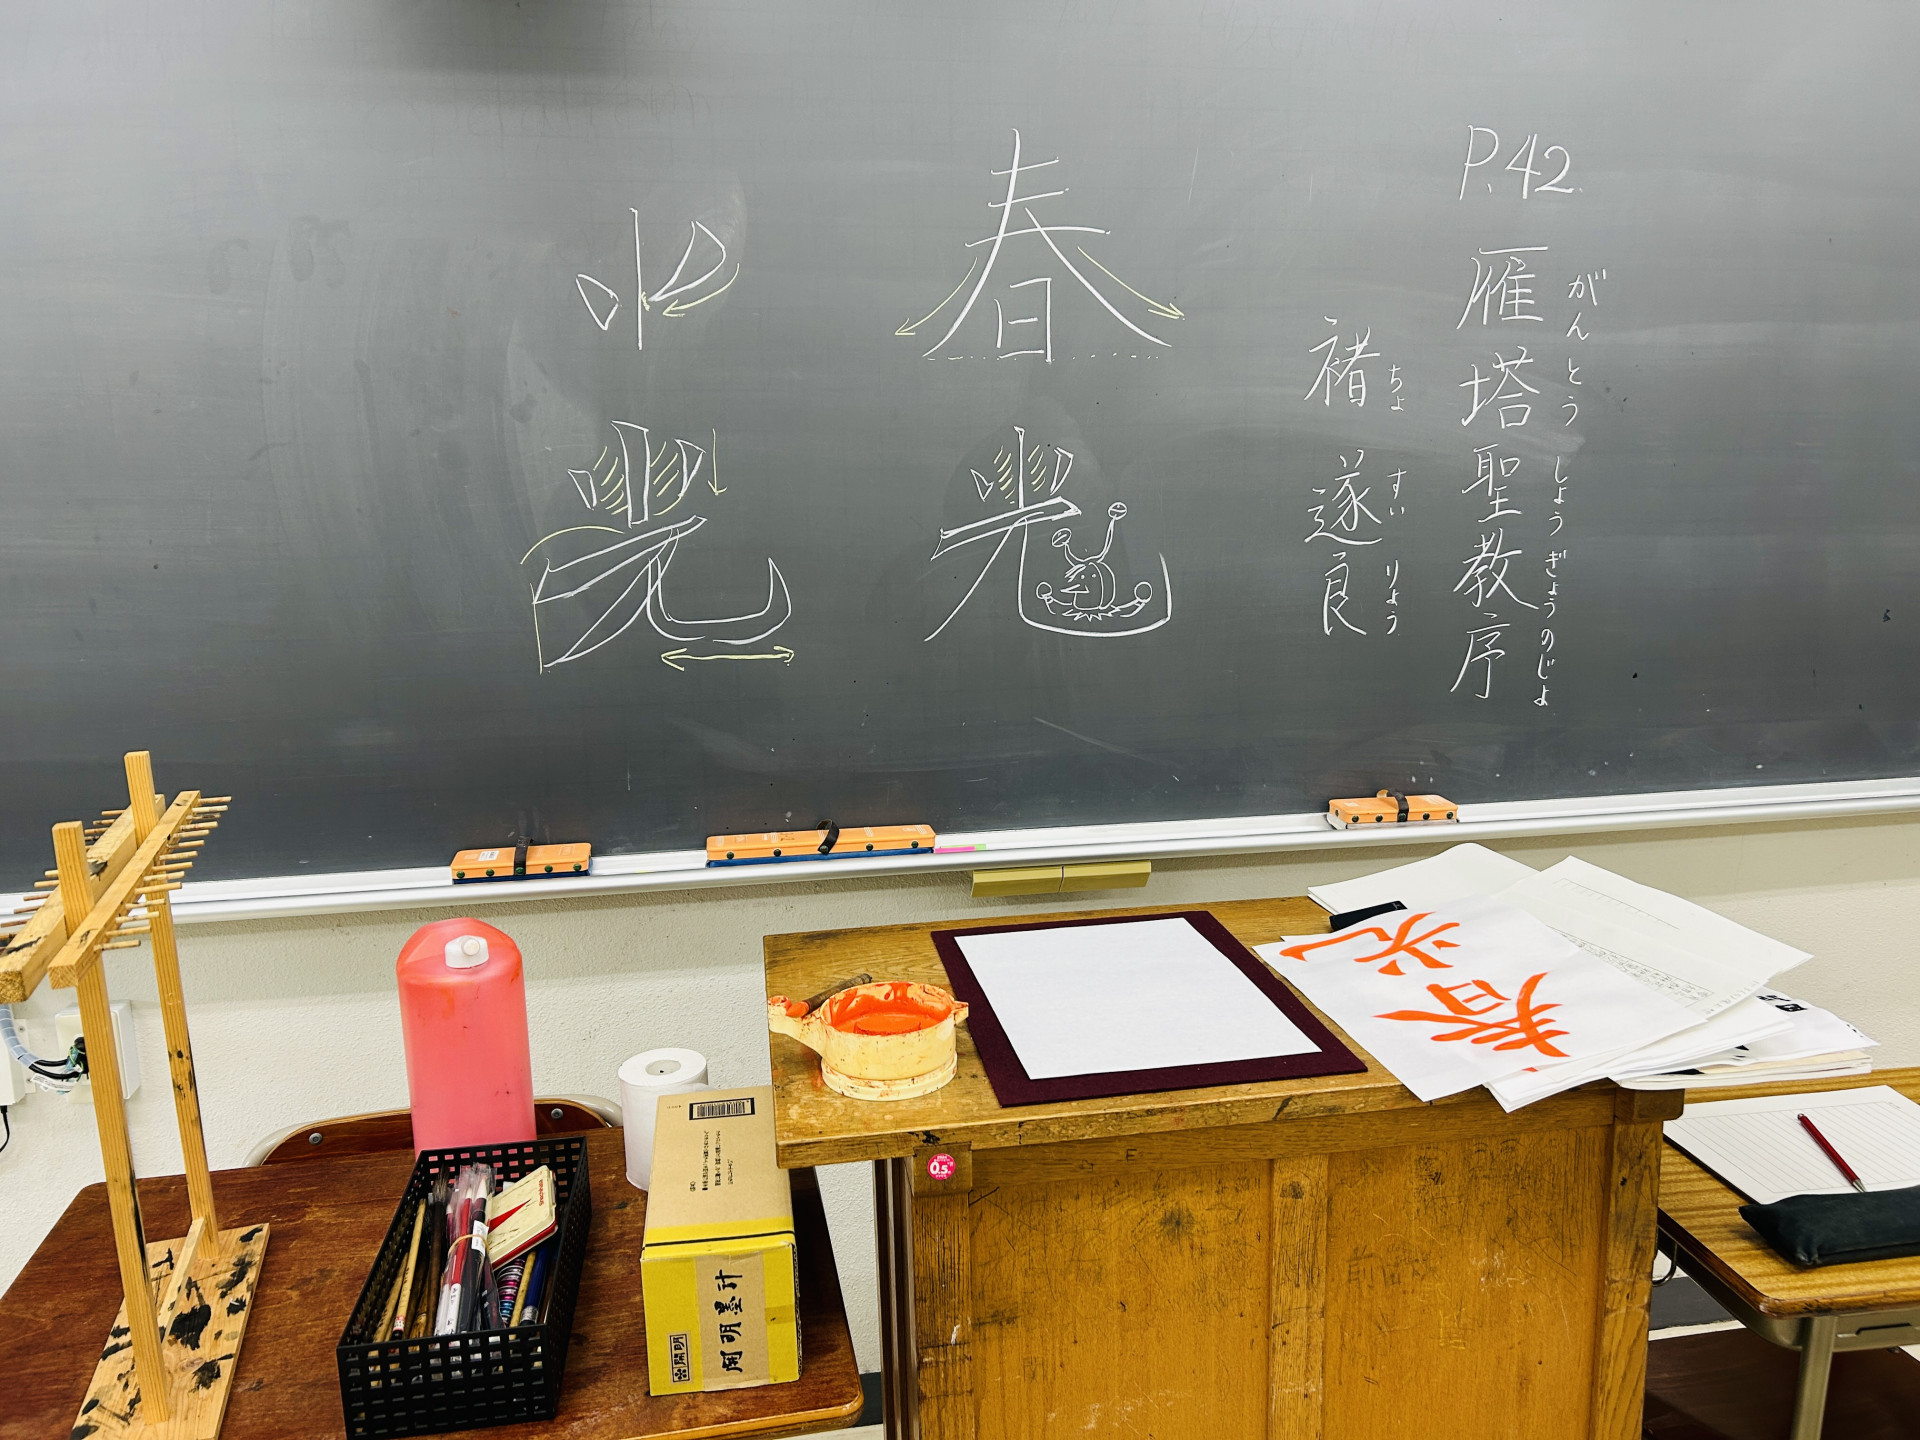 P.42.
雁塔聖教序
がんとう しょうぎょうのじょ
褚遂良
ちょ すい りょう
春光
光
春光
0.5
開明墨汁
開明